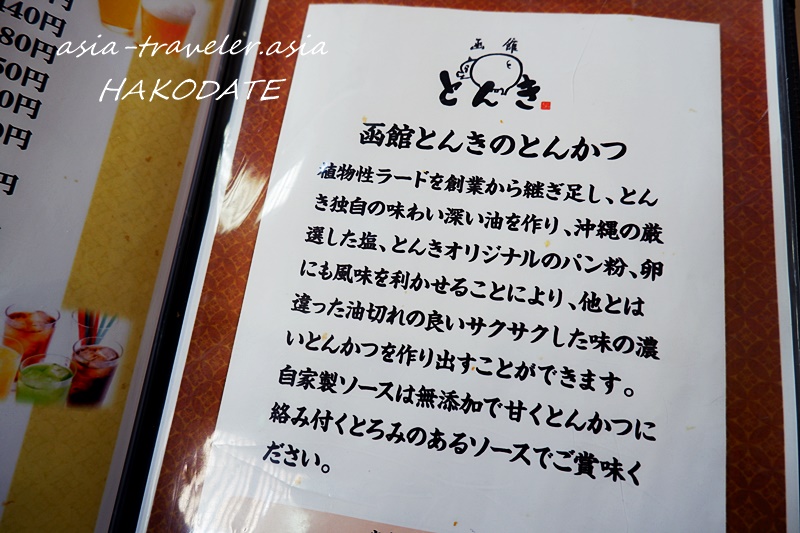 140円
80円
50円
0円
0円
円
asia-traveler.asia
HAKODATE
函館
とんき
函館とんきのとんかつ
植物性ラードを創業から継ぎ足し、とん
き独自の味わい深い油を作り、沖縄の厳
選した塩、とんきオリジナルのパン粉、卵
にも風味を利かせることにより、他とは
違った油切れの良いサクサクした味の濃
いとんかつを作り出すことができます。
自家製ソースは無添加で甘くとんかつに
絡み付くとろみのあるソースでご賞味く
ださい。